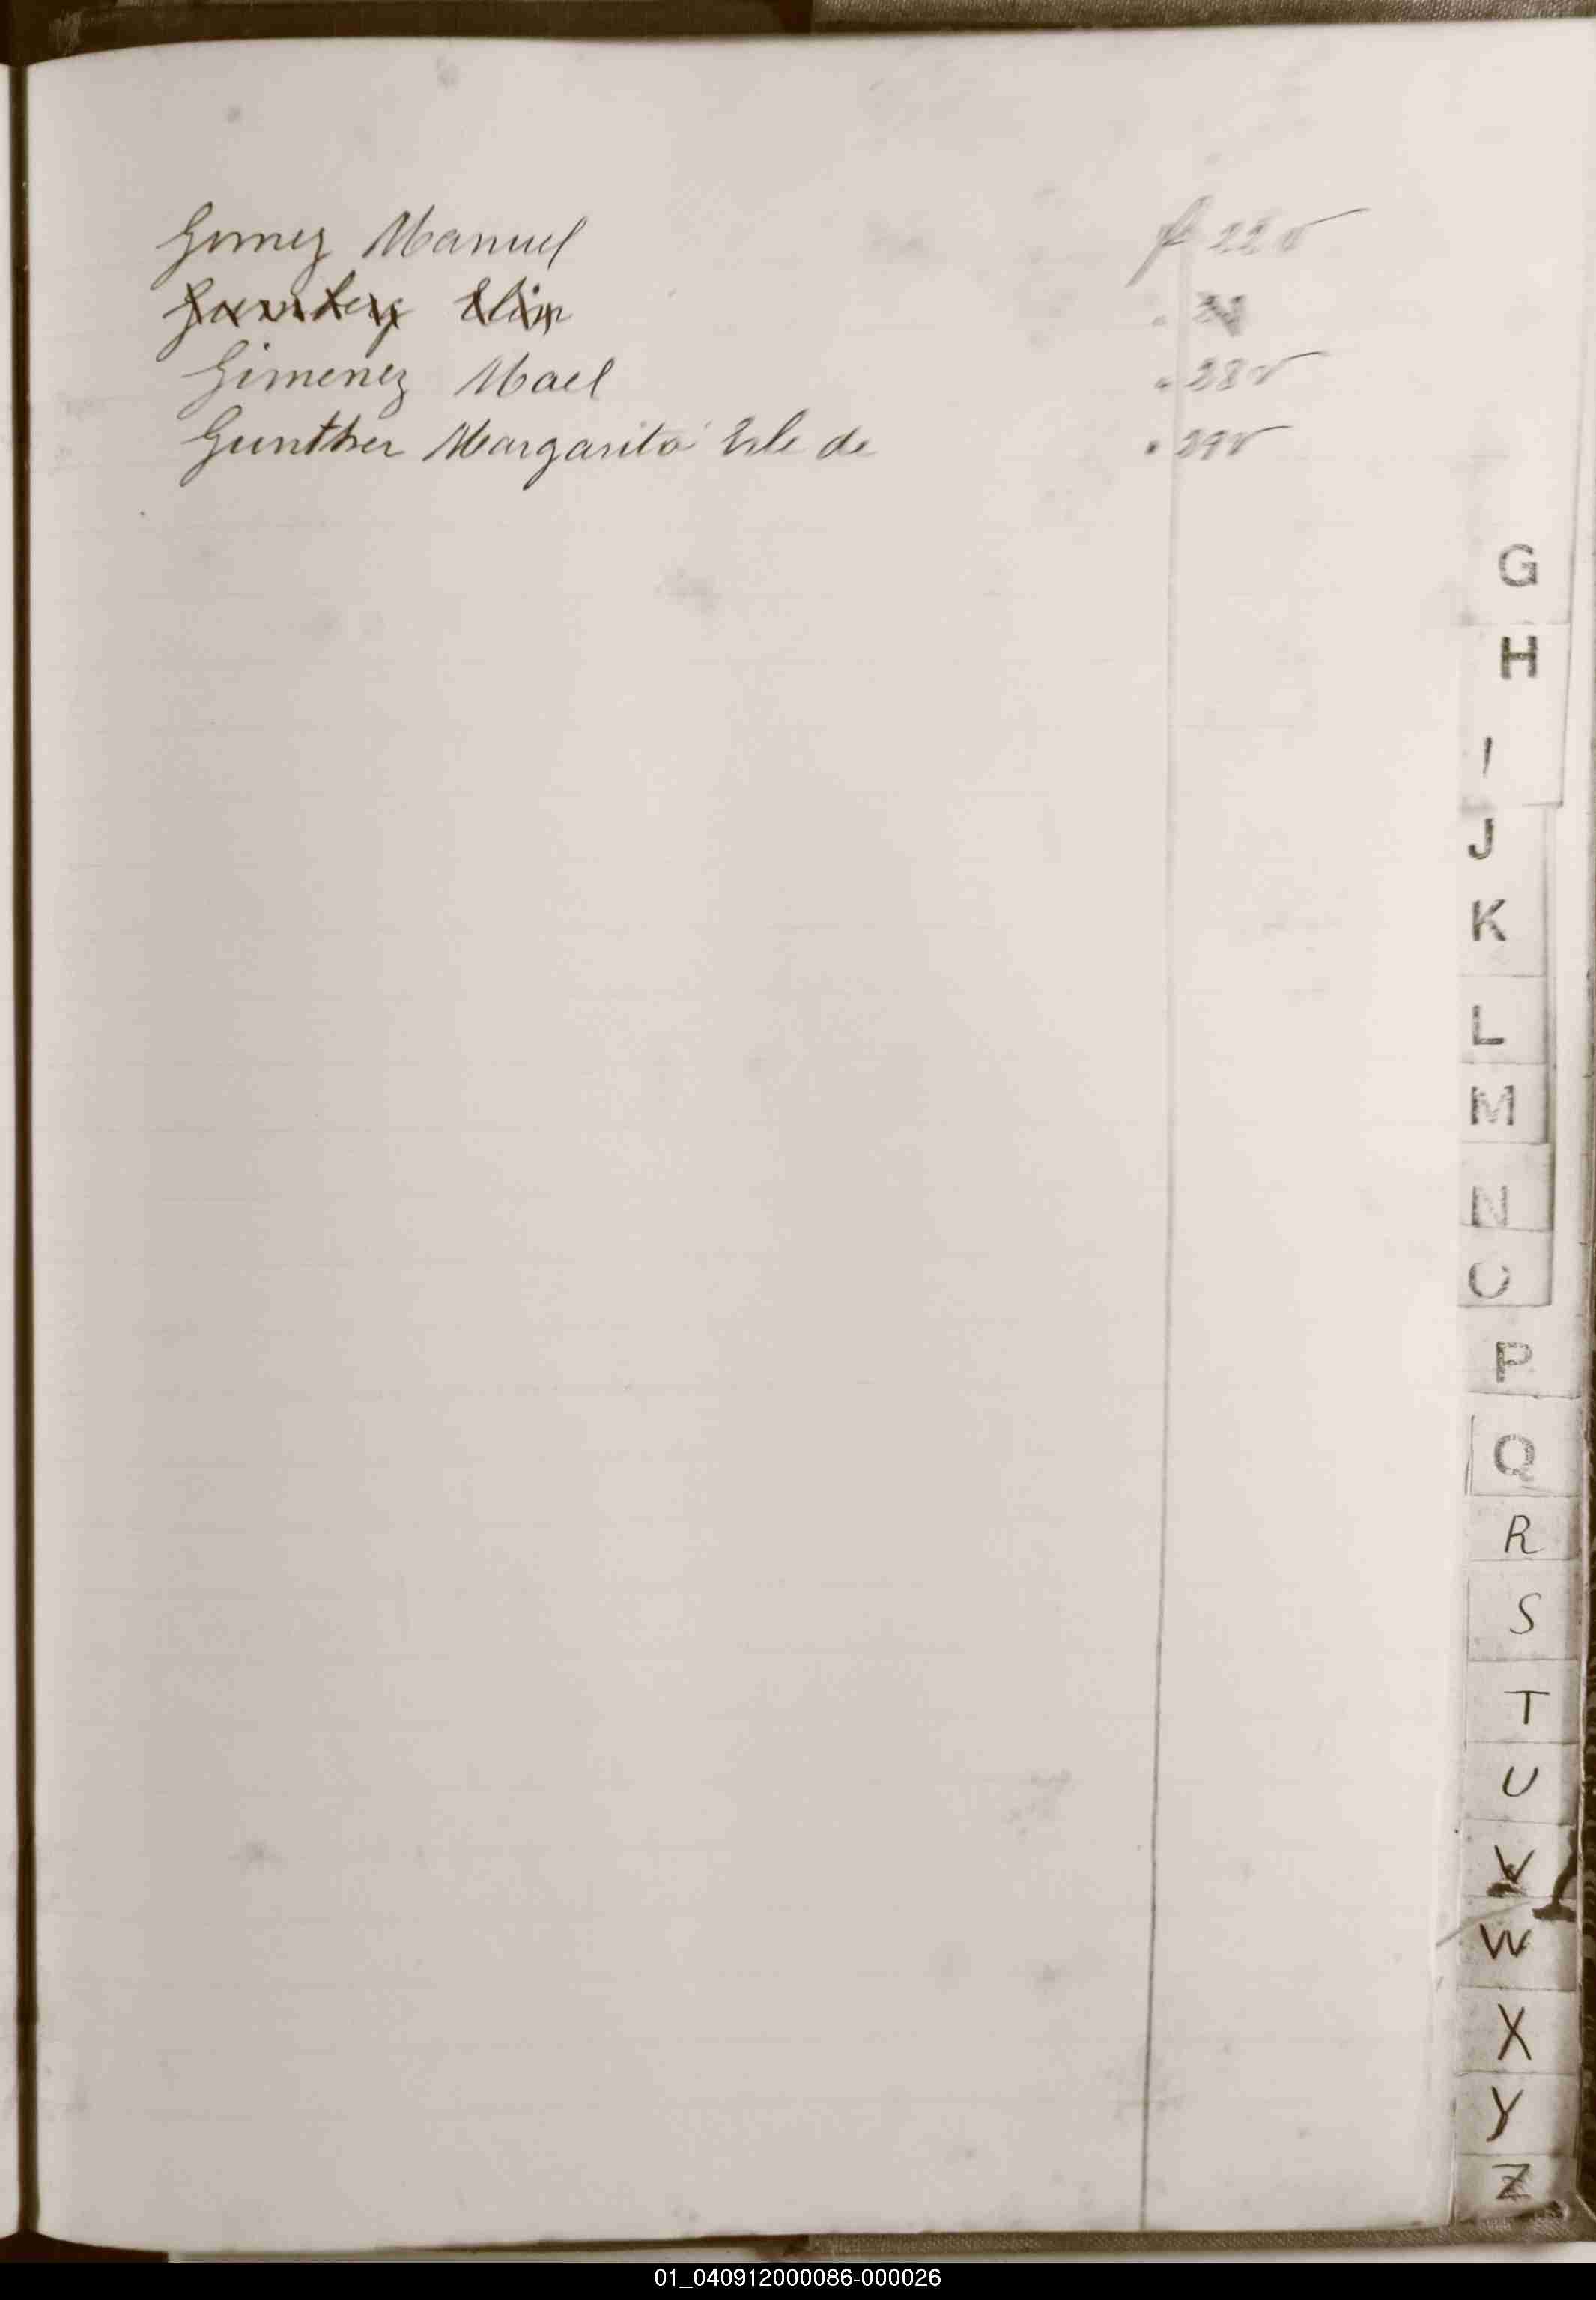 Gomez Manuel f 22 v
Gimenez Mael . 28 v
Gunther Margarita de . 29 v
G
H
I
J
K
L
M
N
O
P
Q
R
S
T
U
V
W
X
Y
Z
01_040912000086-000026